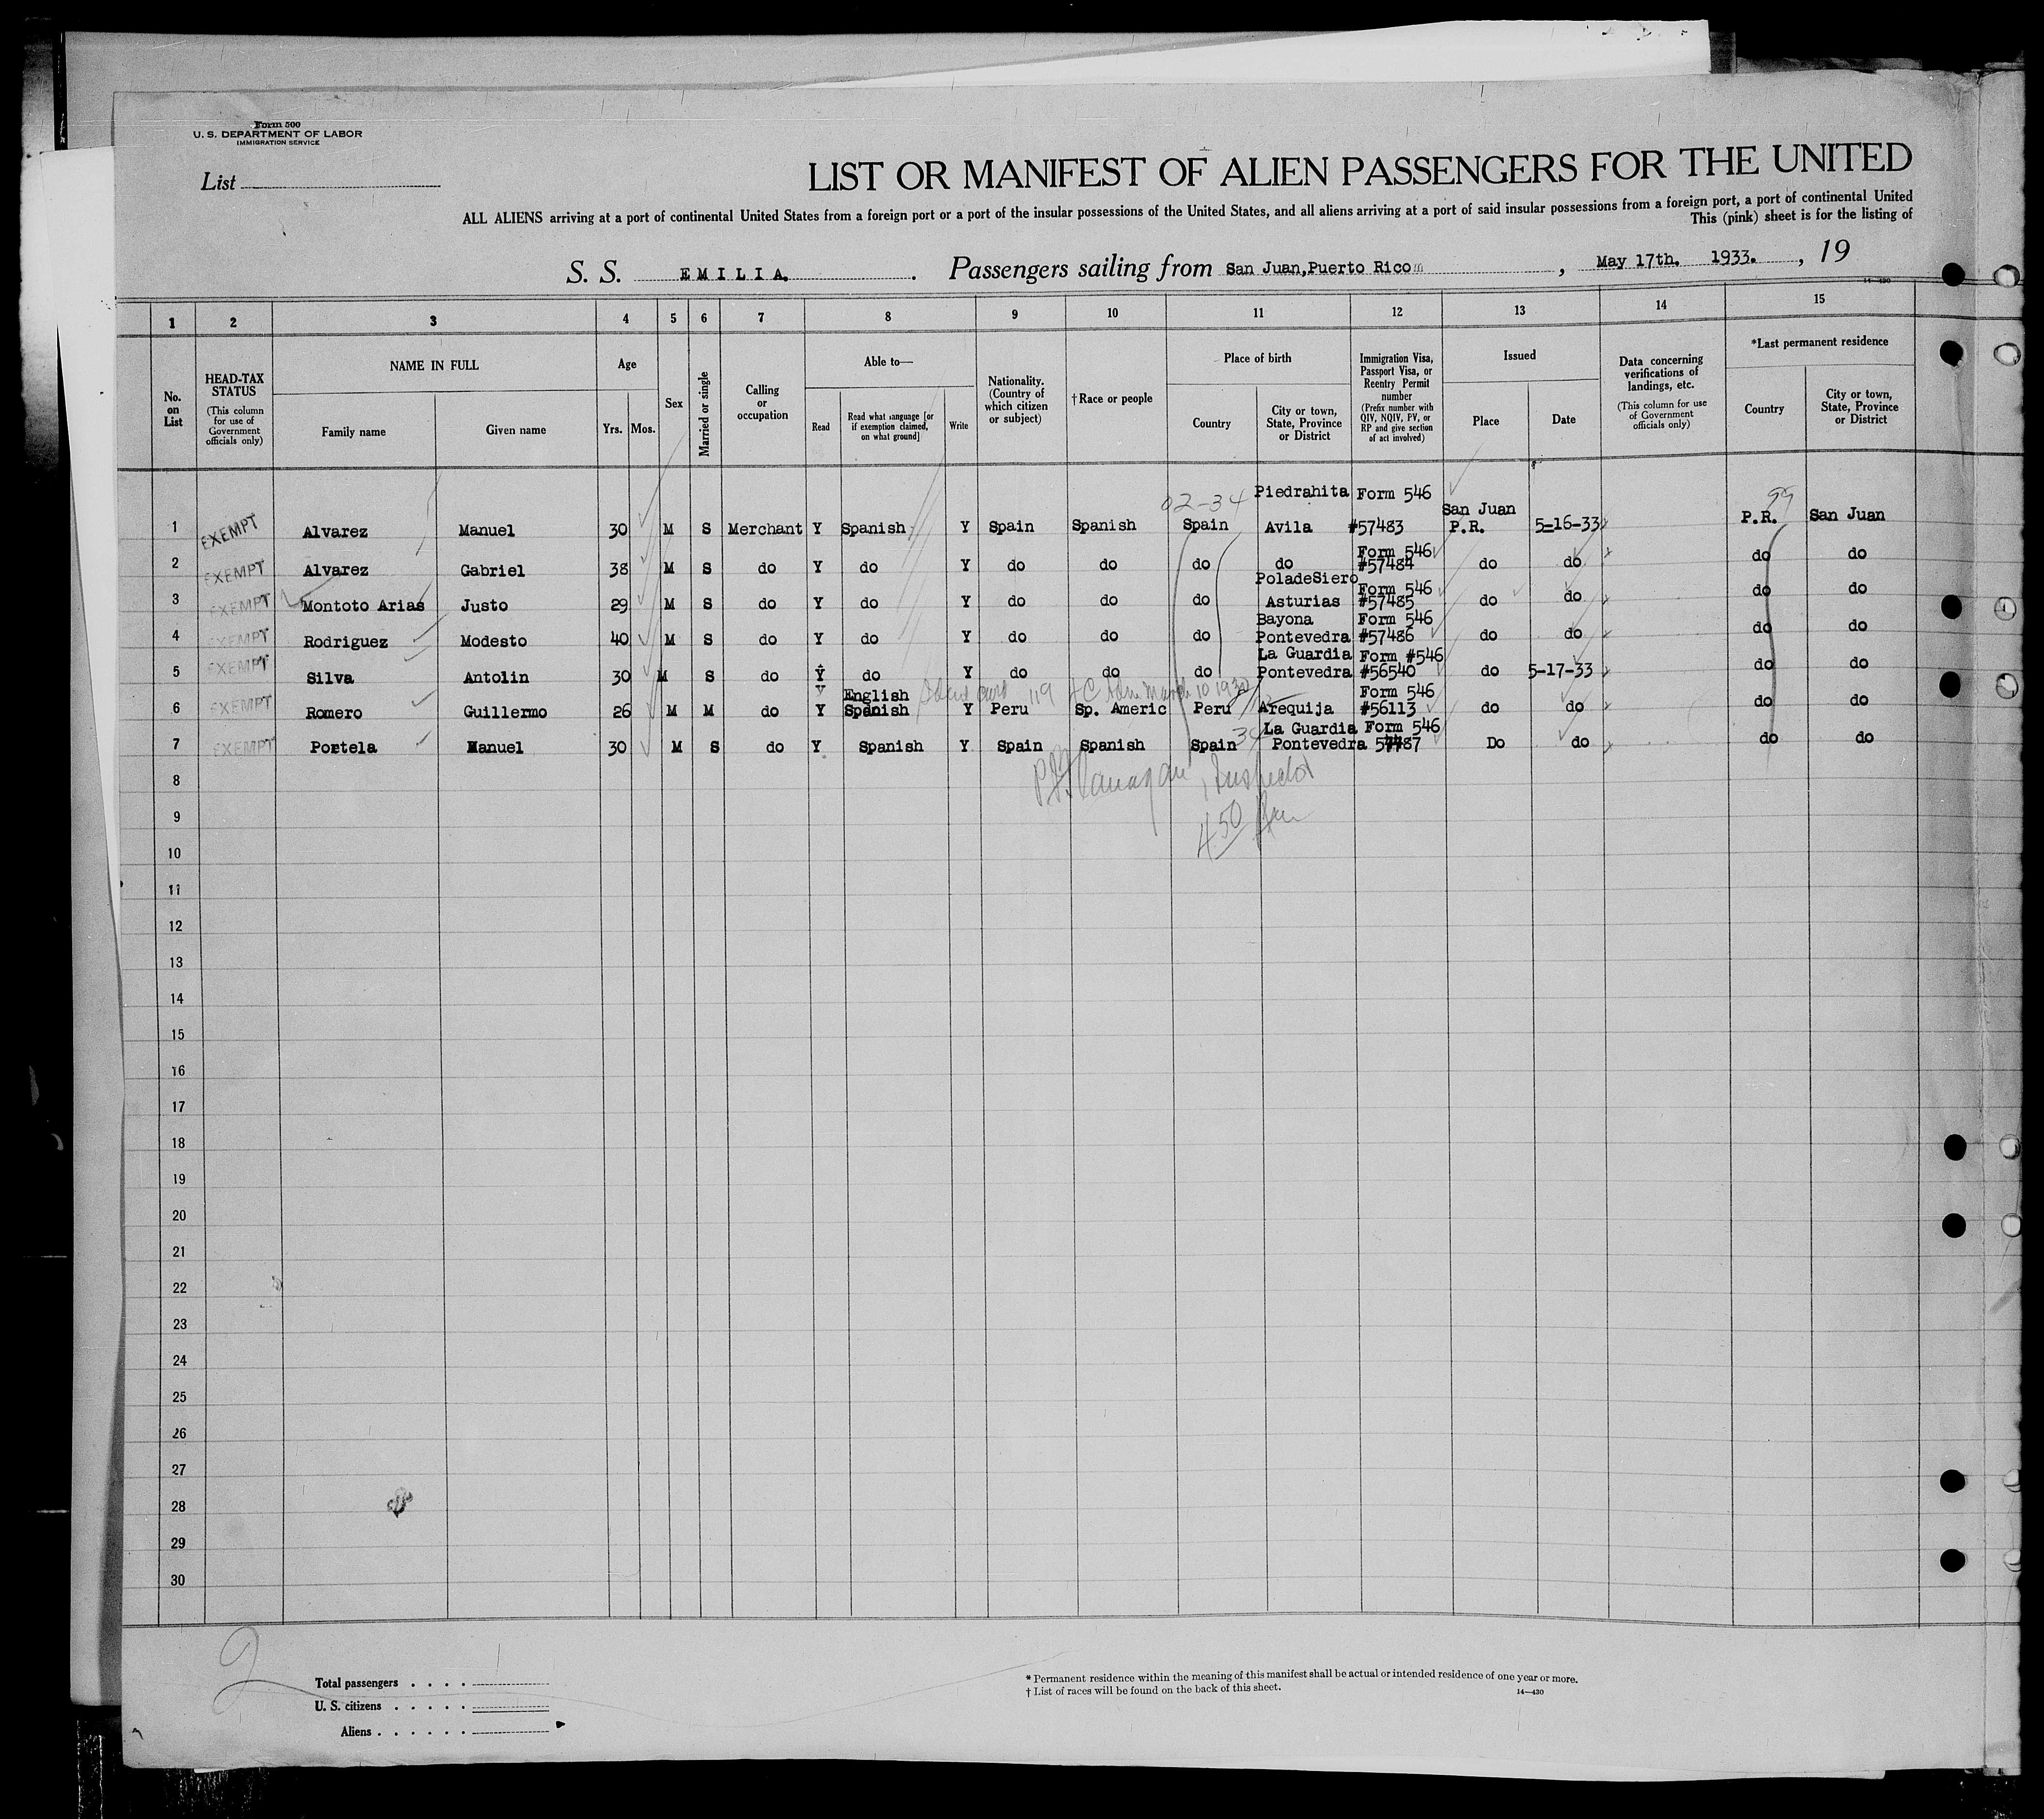 Form 500
U. S. DEPARTMENT OF LABOR
IMMIGRATION SERVICE
List
LIST OR MANIFEST OF ALIEN PASSENGERS FOR THE UNITED
ALL ALIENS arriving at a port of continental United States from a foreign port or a port of the insular possessions of the United States, and all aliens arriving at a port of said insular possessions from a foreign port, a port of continental United
This (pink) sheet is for the listing of
S. S. EMILIA. Passengers sailing from San Juan,Puerto Rico , May 17th. 1933. , 19
14—430
1 2 3 4 5 6 7 8 9 10 11 12 13 14 15
No. on List
HEAD-TAX STATUS
(This column for use of Government officials only)
NAME IN FULL
Family name
Given name
Age
Yrs. Mos.
Sex
Married or single
Calling or occupation
Able to—
Read
Read what language [or if exemption claimed, on what ground]
Write
Nationality. (Country of which citizen or subject)
†Race or people
Place of birth
Country
City or town, State, Province or District
Immigration Visa, Passport Visa, or Reentry Permit number
(Prefix number with QIV, NQIV, PV, or RP and give section of act involved)
Issued
Place
Date
Data concerning verifications of landings, etc.
(This column for use of Government officials only)
*Last permanent residence
Country
City or town, State, Province or District
02-34 Piedrahita Form 546 San Juan 99
1 EXEMPT Alvarez Manuel 30 M S Merchant Y Spanish Y Spain Spanish Spain Avila #57483 P.R. 5-16-33 P.R. San Juan
Form 546
2 EXEMPT Alvarez Gabriel 38 M S do Y do Y do do do do #57484 do do do do
PoladeSiero Form 546
3 EXEMPT Montoto Arias Justo 29 M S do Y do Y do do do Asturias #57485 do do do do
Bayona Form 546
4 EXEMPT Rodriguez Modesto 40 M S do Y do Y do do do Pontevedra #57486 do do do do
La Guardia Form #546
5 EXEMPT Silva Antolin 30 M S do Y do Y do do do Pontevedra #56540 do 5-17-33 do do
Y English 119 March 10 1932 Form 546
6 EXEMPT Romero Guillermo 26 M M do Y Spanish Y Peru Sp. Americ Peru Arequija #56113 do do do do
34 La Guardia Form 546
7 EXEMPT Portela Manuel 30 M S do Y Spanish Y Spain Spanish Spain Pontevedra 57487 Do do do do
P.J. Flanagan, Inspector
8
4 50 Pm
9
10
11
12
13
14
15
16
17
18
19
20
21
22
23
24
25
26
27
28
29
30
2
Total passengers . . . .
U. S. citizens . . . . .
Aliens . . . . . .
* Permanent residence within the meaning of this manifest shall be actual or intended residence of one year or more.
† List of races will be found on the back of this sheet.
14—430